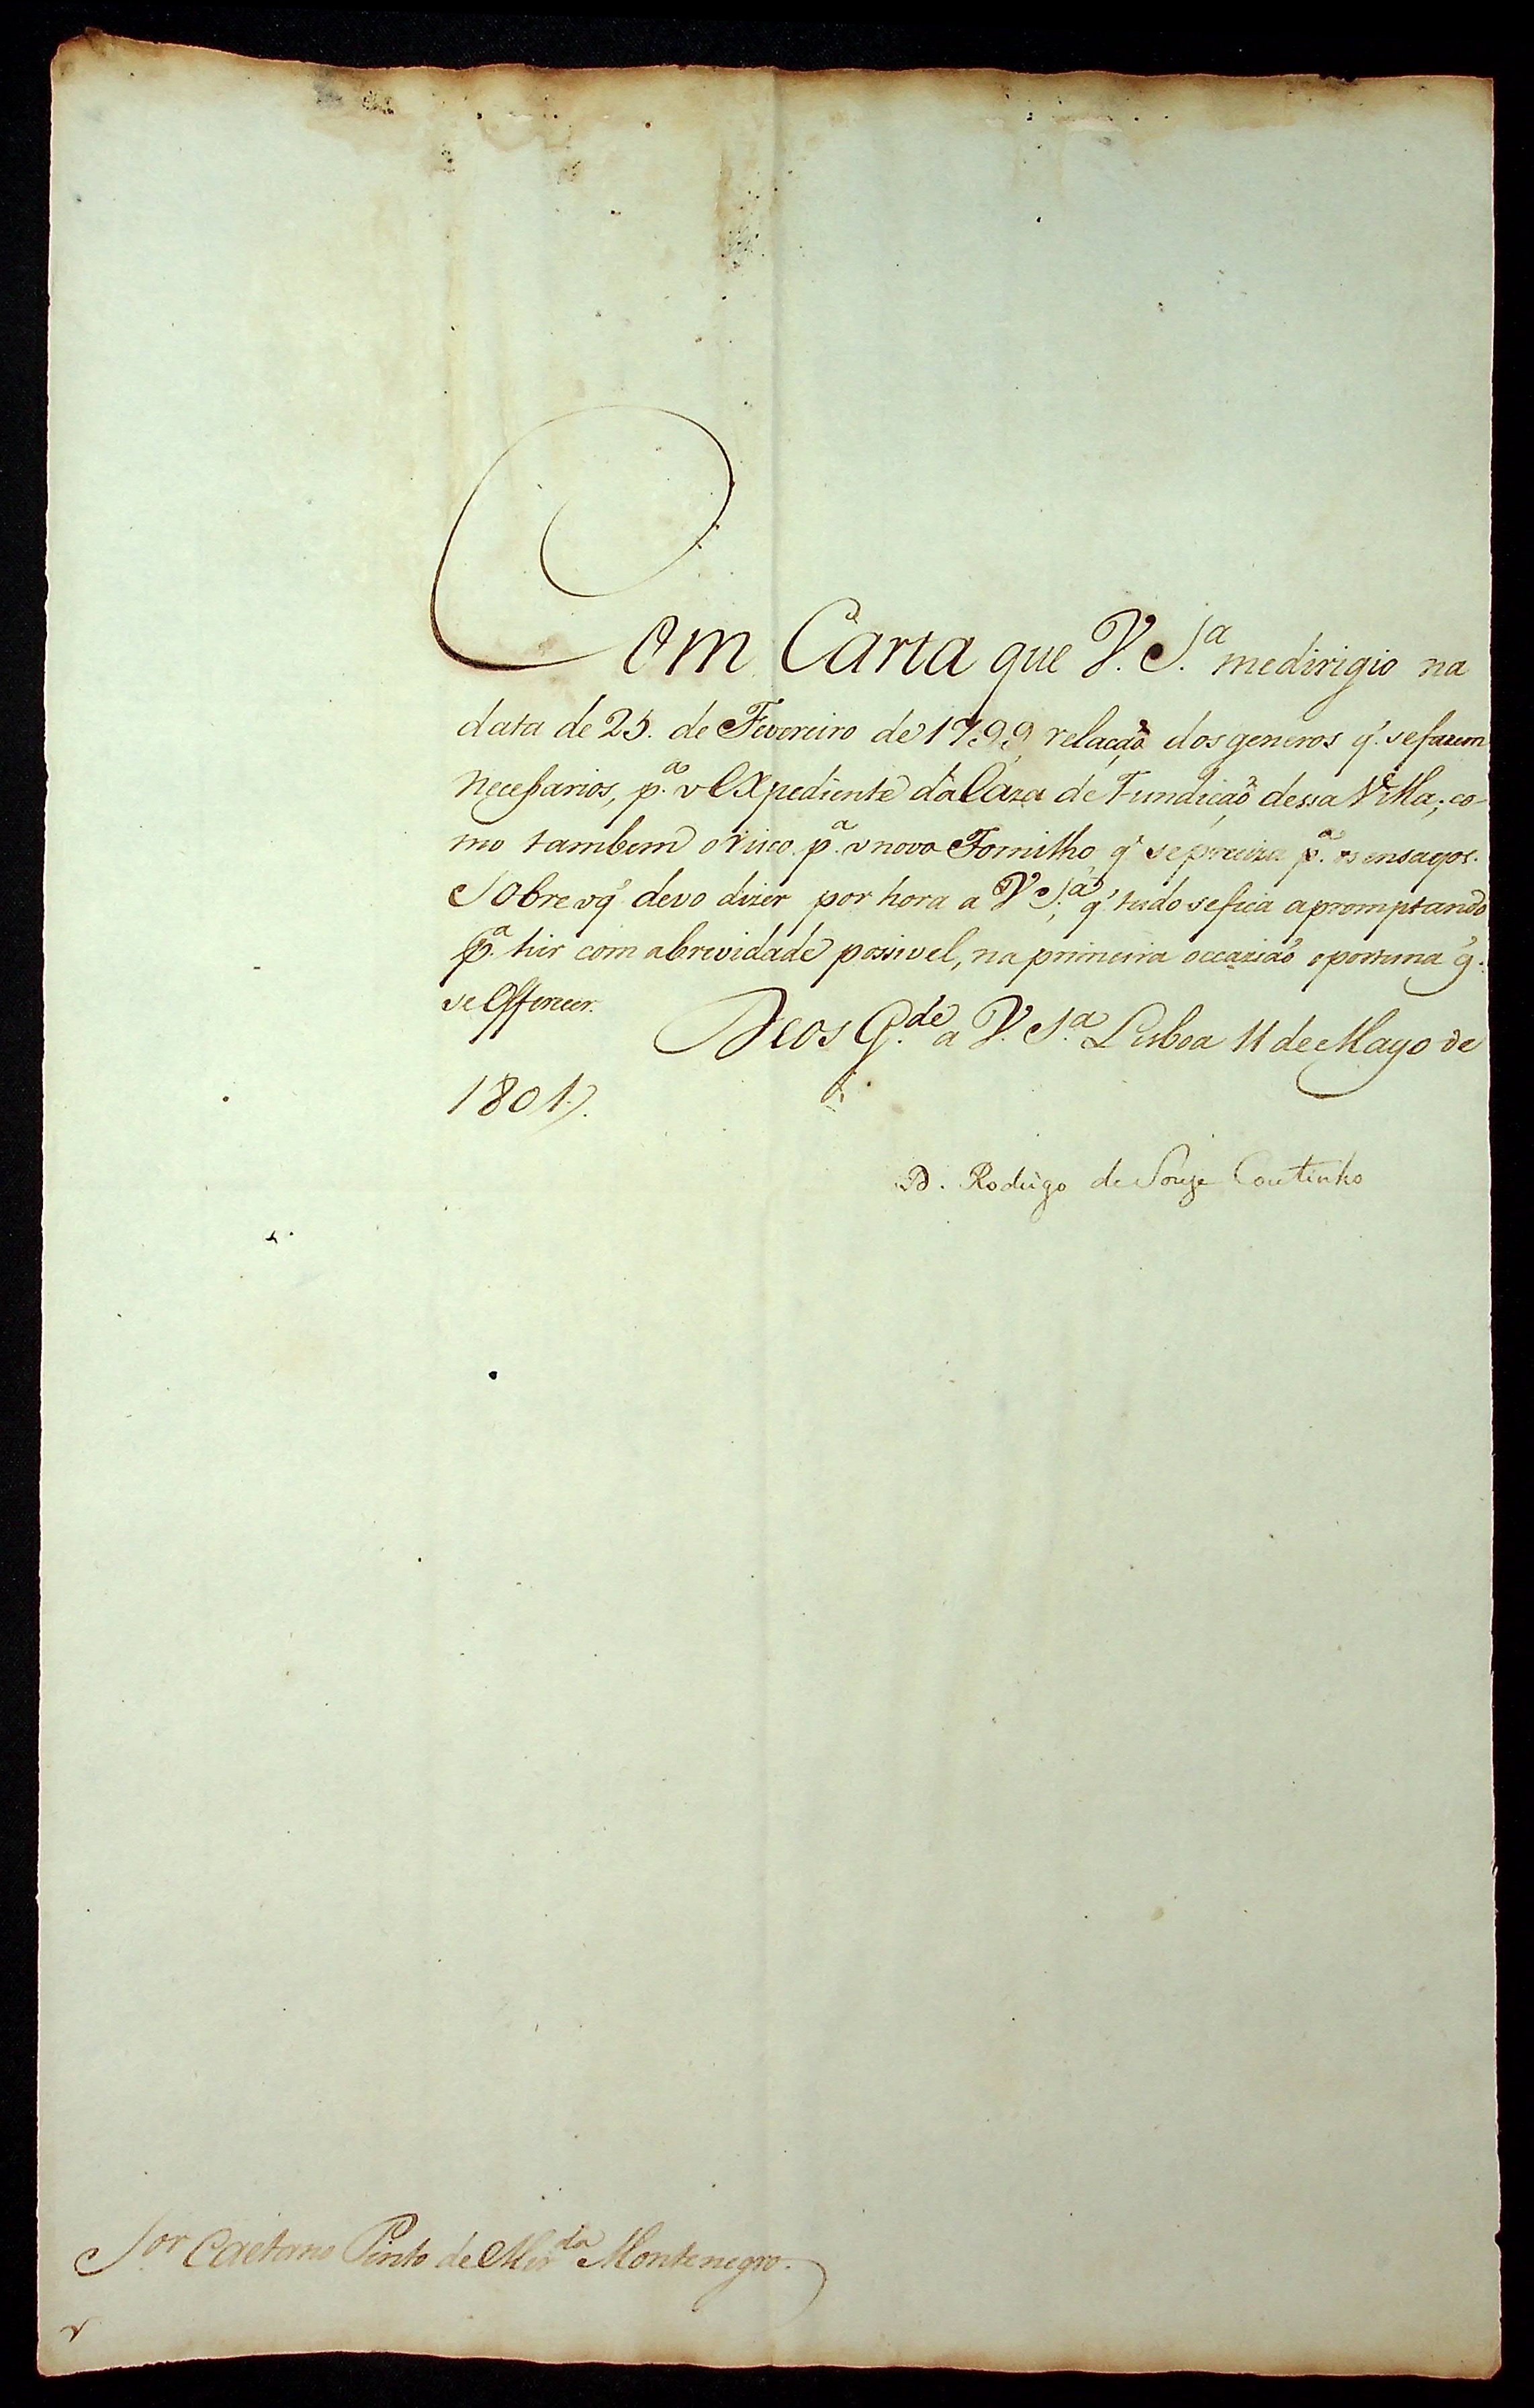 Com Carta que V. S.ª medirigio na
data de 25. de Fevereiro de 1799, relação dos generos q̃. sefazem
necessarios, p.ª o Expediente da Caza de Fundição dessa Villa; co-
mo tambem orisco p.ª onovo Fornilho q̃ sepreciza p.ª os ensayos.
Sobre oq̃ devo dizer por hora a V. S.ª, q̃ tudo sefica apromptando
p.ª hir com abrevidade possivel, na primeira occazião oportuna q̃.
se Offerecer.
Deos G.de a V. S.ª Lisboa 11 de Mayo de
1801.
D. Rodrigo de Souza Coutinho
S.or Caetano Pinto de Mir.da Montenegro.